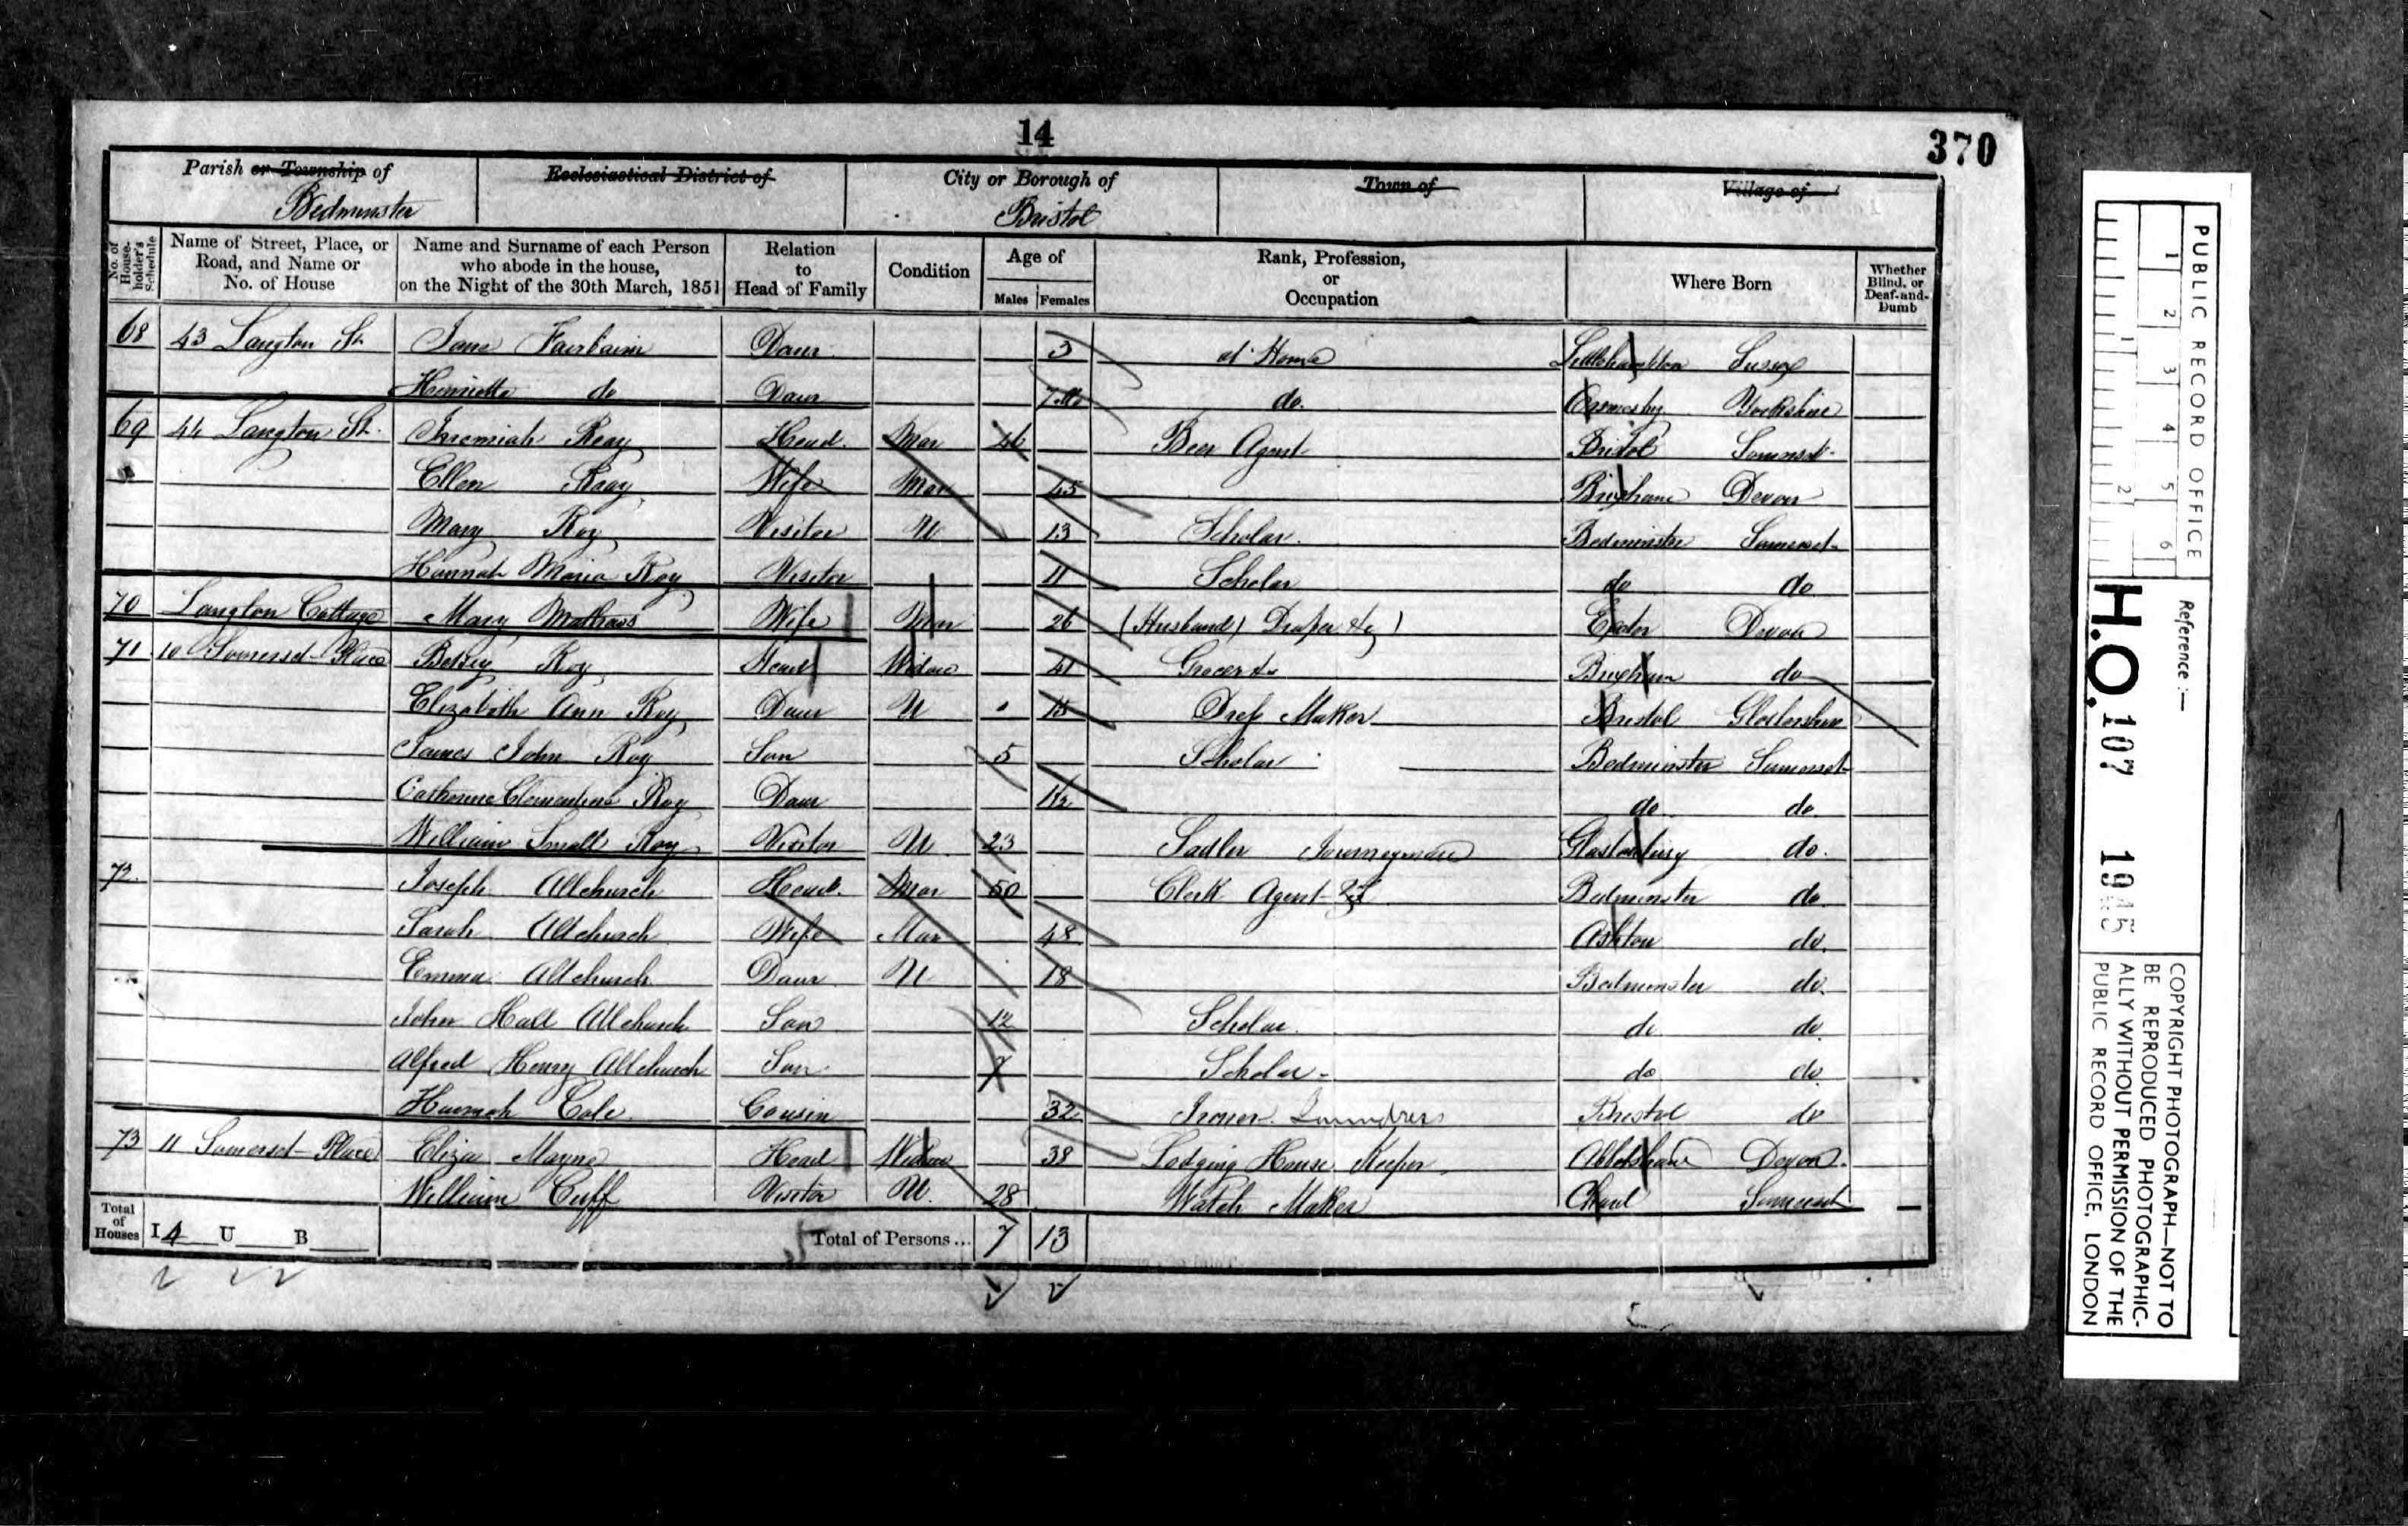 14
370
Parish or Township of
Bedminster
Ecclesiastical District of
City or Borough of
Bristol
Town of
Village of
No. of House-holder's Schedule
Name of Street, Place, or Road, and Name or No. of House
Name and Surname of each Person who abode in the house, on the Night of the 30th March, 1851
Relation to Head of Family
Condition
Age of
Males Females
Rank, Profession, or Occupation
Where Born
Whether Blind, or Deaf-and-Dumb
68 43 Langton St. Jane Fairbairn Daur 3 at Home Littlehampton Sussex
Henrietta do Daur do. Ormesby Yorkshire
69 44 Langton St. Jeremiah Reay Head. Mar 46 Beer Agent Bristol Somerset
Ellen Reay Wife Mar 45 Brixham Devon
Mary Roy Visitor U 13 Scholar. Bedminster Somerset
Hannah Maria Roy Visitor 11 Scholar do do
70 Langton Cottage Mary Mathews Wife Mar 26 (Husband) Draper &c) Exeter Devon
71 10 Somerset Place Betsey Roy Head Widow 41 Grocer &c Brixham do
Elizabeth Ann Roy Daur U 18 Dress Maker Bristol Glostershire
James John Roy Son 5 Scholar Bedminster Somerset
Catherine Clementina Roy Daur do do
William Small Roy Visitor U 23 Sadler Journeyman Glastonbury do.
72. Joseph Allchurch Head. Mar 50 Clerk Agent Bedminster do
Sarah Allchurch Wife Mar 48 Ashton do.
Emma Allchurch Daur U 18 Bedminster do.
John Hall Allchurch Son 12 Scholar. do do
Alfred Henry Allchurch Son 7 Scholar do do
Hannah Cole Cousin 32 Ironer Laundress Bristol do
73 11 Somerset Place Eliza Mayne Head Widow 38 Lodging House Keeper Devon.
William Cuff Visitor U. 28 Watch Maker Chard Somerset
Total of Houses I 4 U B Total of Persons... 7 13
PUBLIC RECORD OFFICE
1 2 3 4 5 6
1 2
Reference :—
H.O. 107 1945
COPYRIGHT PHOTOGRAPH—NOT TO
BE REPRODUCED PHOTOGRAPHIC-
ALLY WITHOUT PERMISSION OF THE
PUBLIC RECORD OFFICE, LONDON